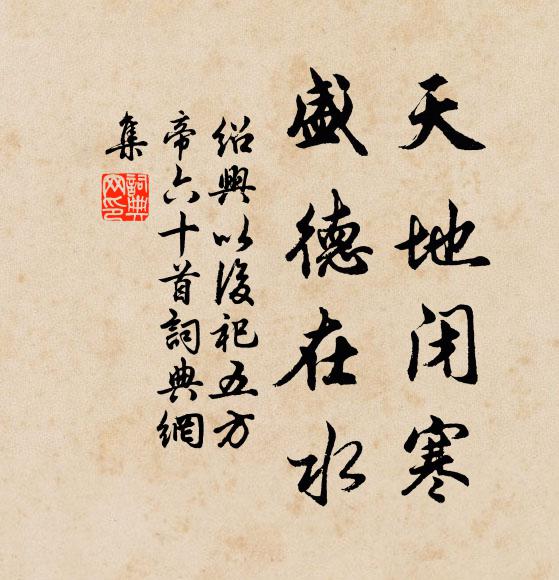 天地闭寒
盛德在水
紹興以後祀五方
帝六十首詞典網
集
詞典
网印